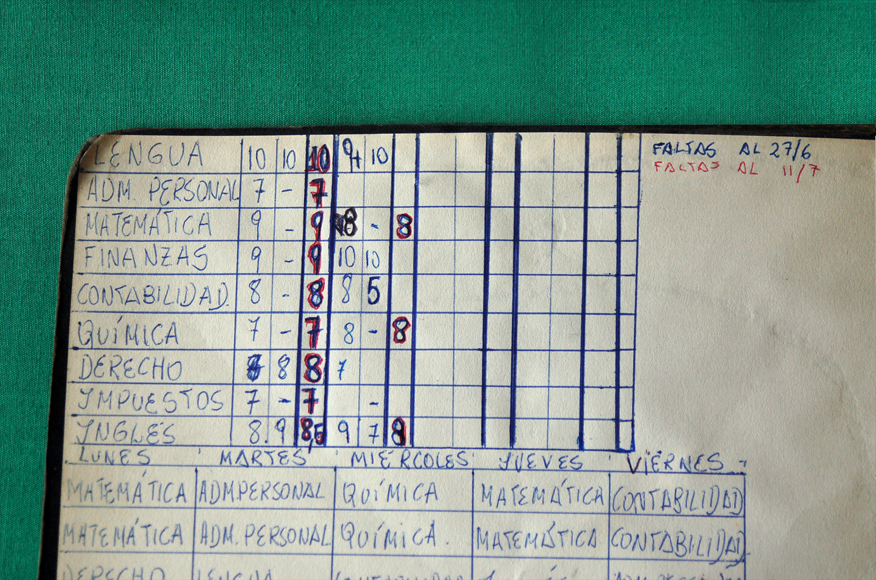 LENGUA 10 10 10 9+ 10
FALTAS AL 27/6
FALTAS AL 11/7
ADM. PERSONAL 7 - 7
MATEMÁTICA 9 - 9 8 - 8
FINANZAS 9 - 9 10 10
CONTABILIDAD. 8 - 8 8 5
QUÍMICA 7 - 7 8 - 8
DERECHO 8 8 7
IMPUESTOS 7 - 7 -
INGLÉS 8. 9 8,5 9 7 8
LUNES MARTES MIÉRCOLES JUEVES VIERNES
MATEMÁTICA ADM PERSONAL QUÍMICA MATEMÁTICA CONTABILIDAD
MATEMÁTICA ADM. PERSONAL QUÍMICA. MATEMÁTICA CONTABILIDAD
DERECHO LENGUA